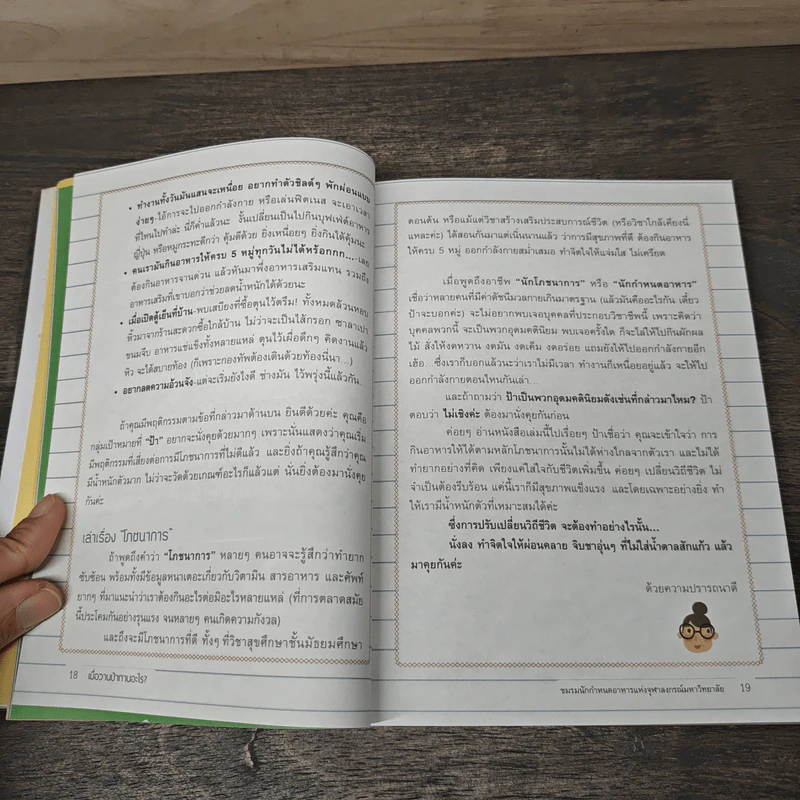 • ทำงานทั้งวันมันแสนจะเหนื่อย อยากทำตัวชิลด์ๆ พักผ่อนแบบ
ง่ายๆ-ไอ้การจะไปออกกำลังกาย หรือเล่นฟิตเนส จะเอาเวลา
ที่ไหนไปทำล่ะ นี่ก็ค่ำแล้วนะ งั้นเปลี่ยนเป็นไปกินบุฟเฟ่ต์อาหาร
ญี่ปุ่น หรือหมูกระทะดีกว่า คุ้มดีด้วย ยิ่งเหนื่อยๆ ยิ่งกินได้คุ้มนะ
• คนเรามันกินอาหารให้ครบ 5 หมู่ทุกวันไม่ได้หร้อกกกก...-เลย
ต้องกินอาหารจานด่วน แล้วหันมาพึ่งอาหารเสริมแทน รวมถึง
อาหารเสริมที่เขาบอกว่าช่วยลดน้ำหนักได้ด้วยนะ
• เมื่อเปิดตู้เย็นที่บ้าน-พบเสบียงที่ซื้อตุนไว้ตรึม! ทั้งหมดล้วนหอบ
หิ้วมาจากร้านสะดวกซื้อใกล้บ้าน ไม่ว่าจะเป็นไส้กรอก ซาลาเปา
ขนมจีบ อาหารแช่แข็งทั้งหลายแหล่ ตุนไว้เผื่อดึกๆ คิดงานแล้ว
หิว จะได้สบายท้อง (ก็เพราะกองทัพต้องเดินด้วยท้องนี่นา...)
• อยากลดความอ้วนจัง-แต่จะเริ่มยังไงดี ช่างมัน ไว้พรุ่งนี้แล้วกัน...
ถ้าคุณมีพฤติกรรมตามข้อที่กล่าวมาด้านบน ยินดีด้วยค่ะ คุณคือ
กลุ่มเป้าหมายที่ "ป้า" อยากจะนั่งคุยด้วยมากๆ เพราะนั่นแสดงว่าคุณเริ่ม
มีพฤติกรรมที่เสี่ยงต่อการมีโภชนาการที่ไม่ดีแล้ว และยิ่งถ้าคุณรู้สึกว่าคุณ
มีน้ำหนักตัวมาก ไม่ว่าจะวัดด้วยเกณฑ์อะไรก็แล้วแต่ นั่นยิ่งต้องมานั่งคุย
กันค่ะ
เล่าเรื่อง "โภชนาการ"
ถ้าพูดถึงคำว่า "โภชนาการ" หลายๆ คนอาจจะรู้สึกว่าทำยาก
ซับซ้อน พร้อมทั้งมีข้อมูลหนาเตอะเกี่ยวกับวิตามิน สารอาหาร และศัพท์
ยากๆ ที่มาแนะนำว่าเราต้องกินอะไรต่อมิอะไรหลายแหล่ (ที่การตลาดสมัย
นี้ประโคมกันอย่างรุนแรง จนหลายๆ คนเกิดความกังวล)
และถึงจะมีโภชนาการที่ดี ทั้งๆ ที่วิชาสุขศึกษาชั้นมัธยมศึกษา
18 เมื่อวานป้าทานอะไร?
ตอนต้น หรือแม้แต่วิชาสร้างเสริมประสบการณ์ชีวิต (หรือวิชาใกล้เคียงนี่
แหละค่ะ) ได้สอนกันมาแต่เนิ่นนานแล้ว ว่าการมีสุขภาพที่ดี ต้องกินอาหาร
ให้ครบ 5 หมู่ ออกกำลังกายสม่ำเสมอ ทำจิตใจให้แจ่มใส ไม่เครียด
เมื่อพูดถึงอาชีพ "นักโภชนาการ" หรือ "นักกำหนดอาหาร"
เชื่อว่าหลายคนที่มีค่าดัชนีมวลกายเกินมาตรฐาน (แล้วมันคืออะไรกัน เดี๋ยว
ป้าจะบอกค่ะ) จะไม่อยากพบเจอบุคคลที่ประกอบวิชาชีพนี้ เพราะคิดว่า
บุคคลพวกนี้ จะเป็นพวกอุดมคตินิยม พบเจอครั้งใด ก็จะไล่ให้ไปกินผักผล
ไม้ สั่งให้งดหวาน งดมัน งดเค็ม งดอร่อย แถมยังให้ไปออกกำลังกายอีก
เฮ้อ...ซึ่งเราก็บอกแล้วนะว่าเราไม่มีเวลา ทำงานก็เหนื่อยอยู่แล้ว จะให้ไป
ออกกำลังกายตอนไหนกันเล่า...
และถ้าถามว่า ป้าเป็นพวกอุดมคตินิยมดังเช่นที่กล่าวมาไหม? ป้า
ตอบว่า ไม่เชิงค่ะ ต้องมานั่งคุยกันก่อน
ค่อยๆ อ่านหนังสือเล่มนี้ไปเรื่อยๆ ป้าเชื่อว่า คุณจะเข้าใจว่า การ
กินอาหารให้ได้ตามหลักโภชนาการนั้นไม่ได้ห่างไกลจากตัวเรา และไม่ได้
ทำยากอย่างที่คิด เพียงแค่ใส่ใจกับชีวิตเพิ่มขึ้น ค่อยๆ เปลี่ยนวิถีชีวิต ไม่
จำเป็นต้องรีบร้อน แค่นี้เราก็มีสุขภาพแข็งแรง และโดยเฉพาะอย่างยิ่ง ทำ
ให้เรามีน้ำหนักตัวที่เหมาะสมได้ค่ะ
ซึ่งการปรับเปลี่ยนวิถีชีวิต จะต้องทำอย่างไรนั้น...
นั่งลง ทำจิตใจให้ผ่อนคลาย จิบชาอุ่นๆ ที่ไม่ใส่น้ำตาลสักแก้ว แล้ว
มาคุยกันค่ะ
ด้วยความปรารถนาดี
ชมรมนักกำหนดอาหารแห่งจุฬาลงกรณ์มหาวิทยาลัย 19